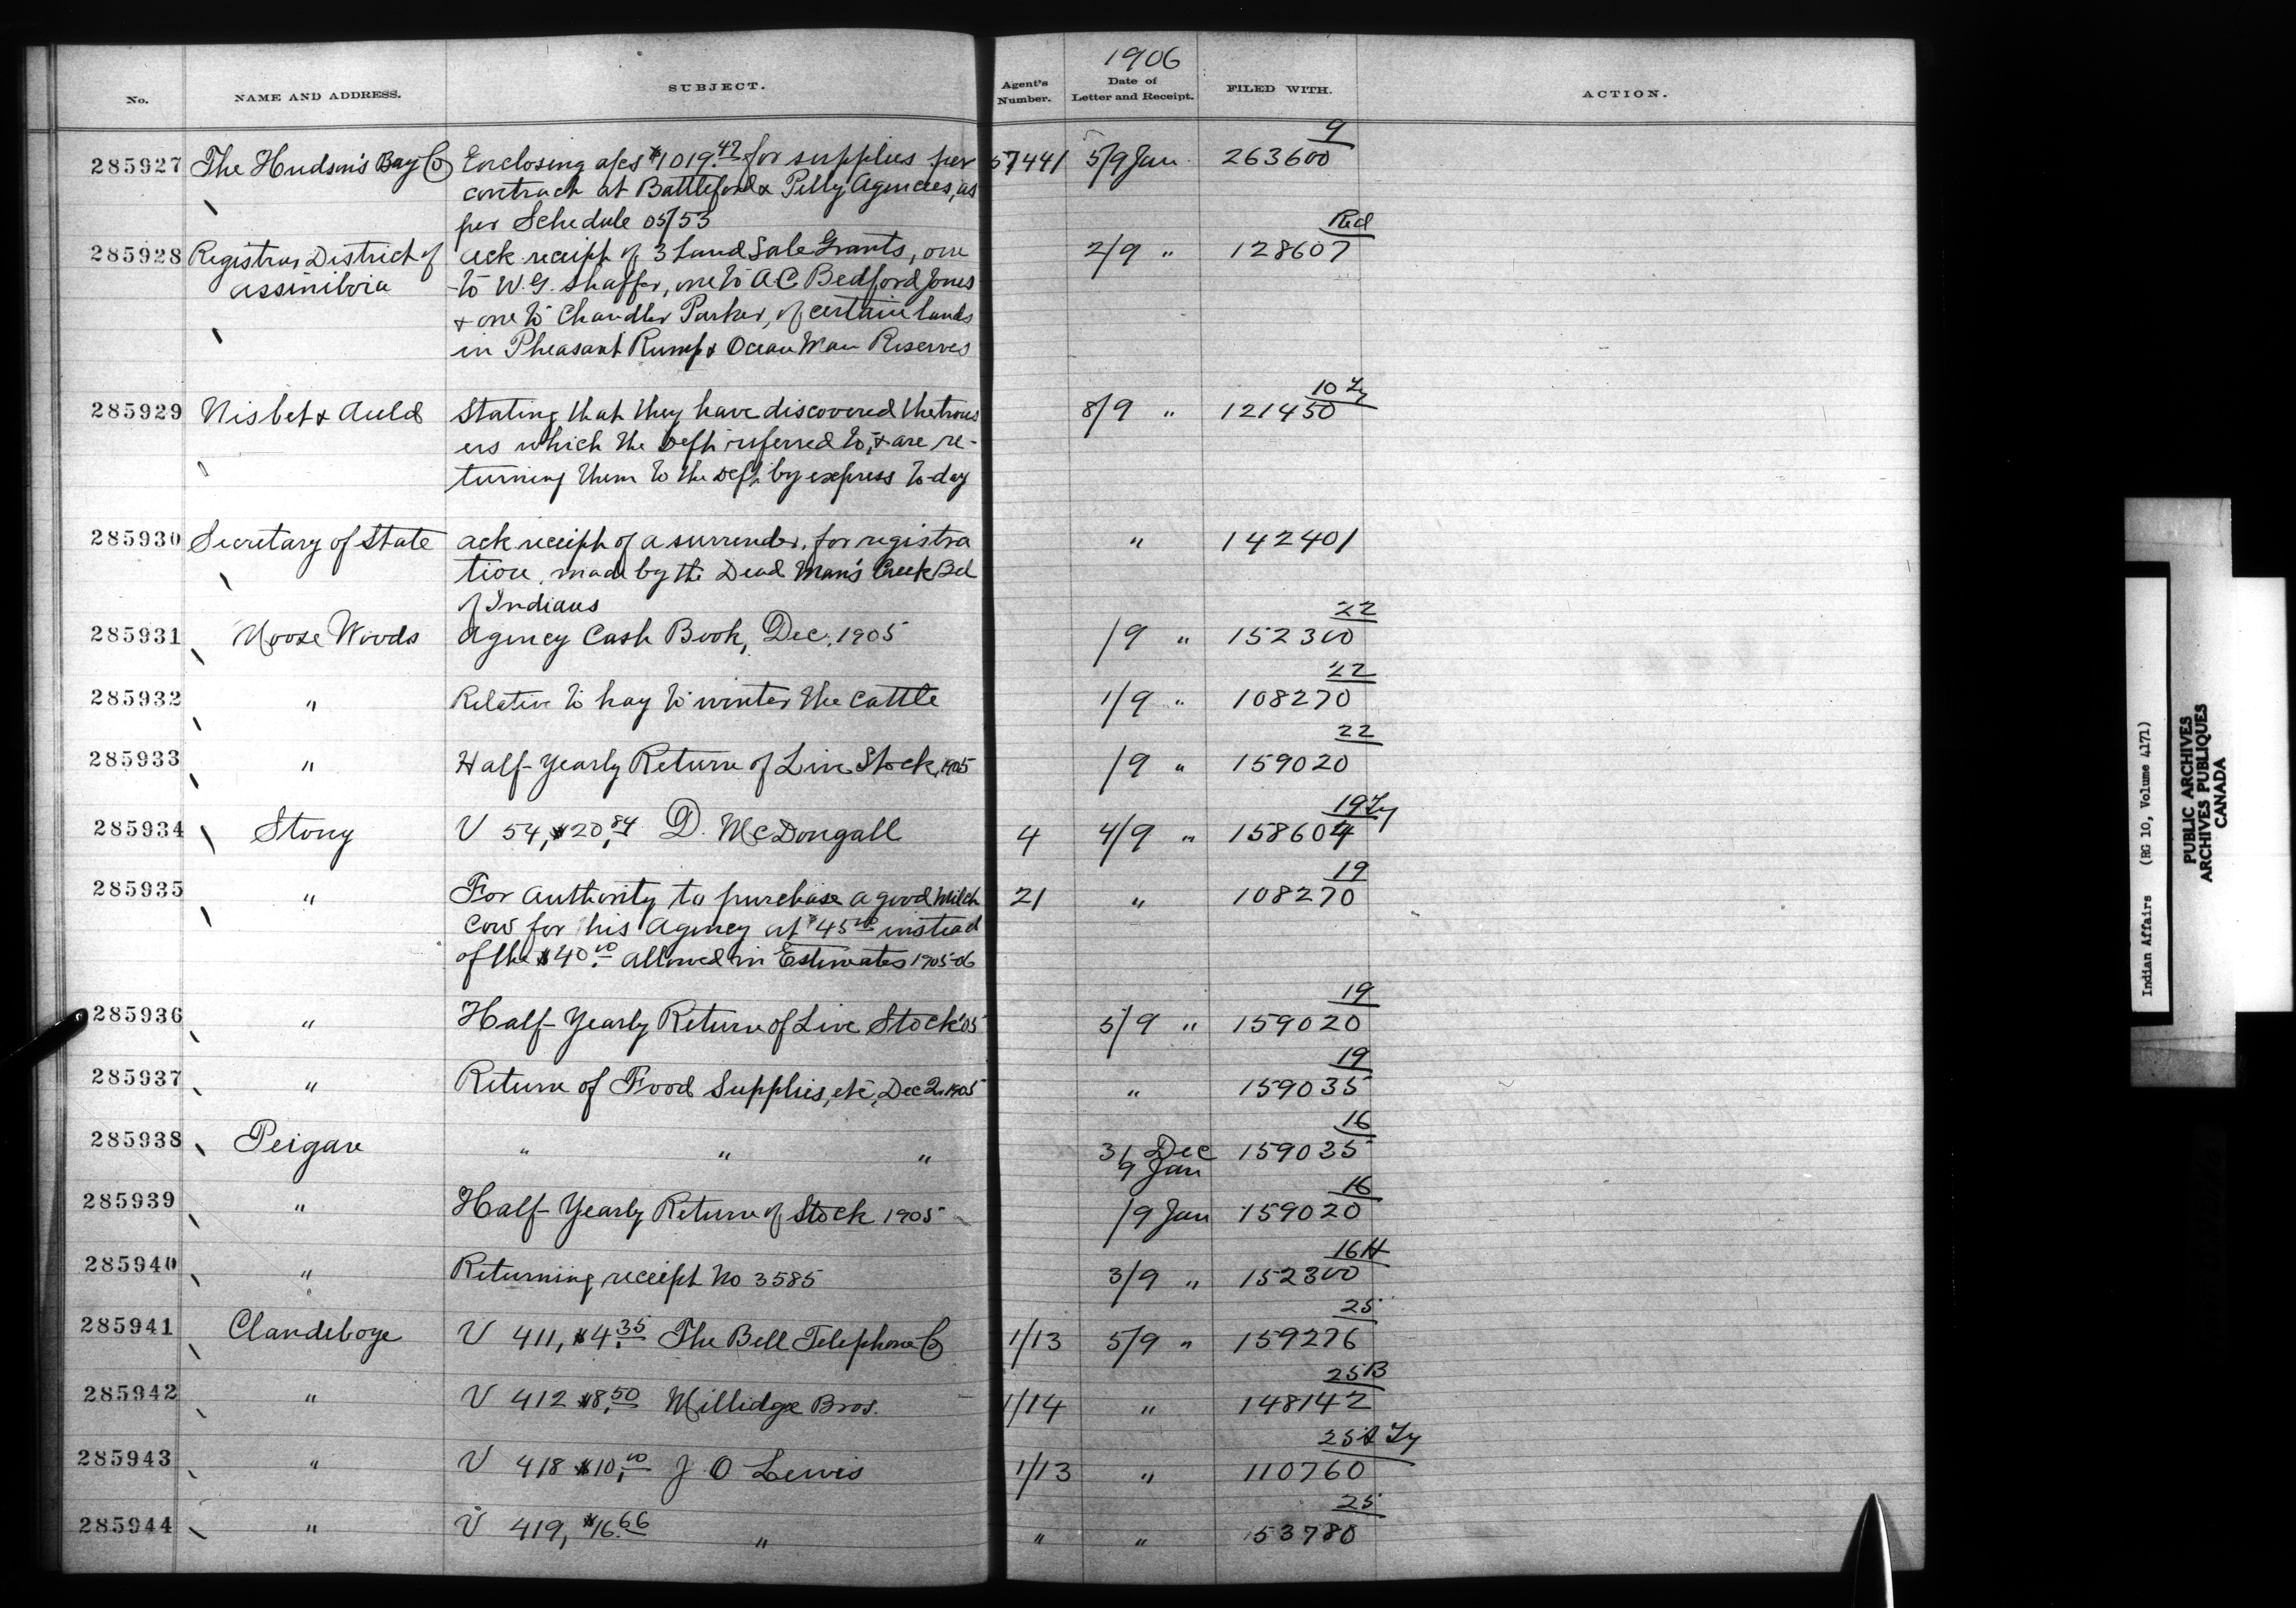 1906
No. NAME AND ADDRESS. SUBJECT. Agent's Number. Date of Letter and Receipt. FILED WITH. ACTION.
9
285927 The Hudson's Bay Co Enclosing a/cs $1019.47 for supplies per 57441 5/9 Jan. 263600
contract at Battleford & Pelly Agencies, as
per Schedule 05/53
Red
285928 Registrar District of Ack receipt of 3 Land Sale Grants, one 2/9 " 128607
Assiniboia to W.G. Shaffer, one to A.C. Bedford Jones
& one to Chandler Parker, of certain lands
in Pheasant Rump & Ocean Man Reserves
10
285929 Nisbet & Auld Stating that they have discovered the trous 8/9 " 121450
ers which the Dept referred to, & are re-
turning them to the Dept by express to-day
285930 Secretary of State Ack receipt of a surrender, for registra " 142401
tion, made by the Dead Man's Creek Bd
of Indians
22
285931 Moose Woods Agency Cash Book, Dec. 1905 /9 " 152300
22
285932 " Relative to hay to winter the cattle 1/9 " 108270
22
285933 " Half-Yearly Return of Live Stock, 1905 /9 " 159020
19
285934 Stony V 54, $20.84 D. McDougall 4 4/9 " 158604
19
285935 " For authority to purchase a good milch 21 " 108270
cow for his Agency at $45.00 instead
of the $40.00 allowed in Estimates 1905-06
19
285936 " Half-Yearly Return of Live Stock '05 5/9 " 159020
19
285937 " Return of Food Supplies, etc, Dec 2. 1905 " 159035
16
285938 Peigan " " " 31 Dec 159035
9 Jan
16
285939 " Half-Yearly Return of Stock 1905 /9 Jan 159020
16H
285940 " Returning receipt No 3585 3/9 " 152300
25
285941 Clandeboye V 411, $4.35 The Bell Telephone Co 1/13 5/9 " 159276
25B
285942 " V 412 $8.50 Millidge Bros. 1/14 " 148142
25
285943 " V 418 $10.00 J O Lewis 1/13 " 110760
25
285944 " V 419, $16.66 " " " 53780
Indian Affairs (RG 10, Volume 4171)
PUBLIC ARCHIVES
ARCHIVES PUBLIQUES
CANADA